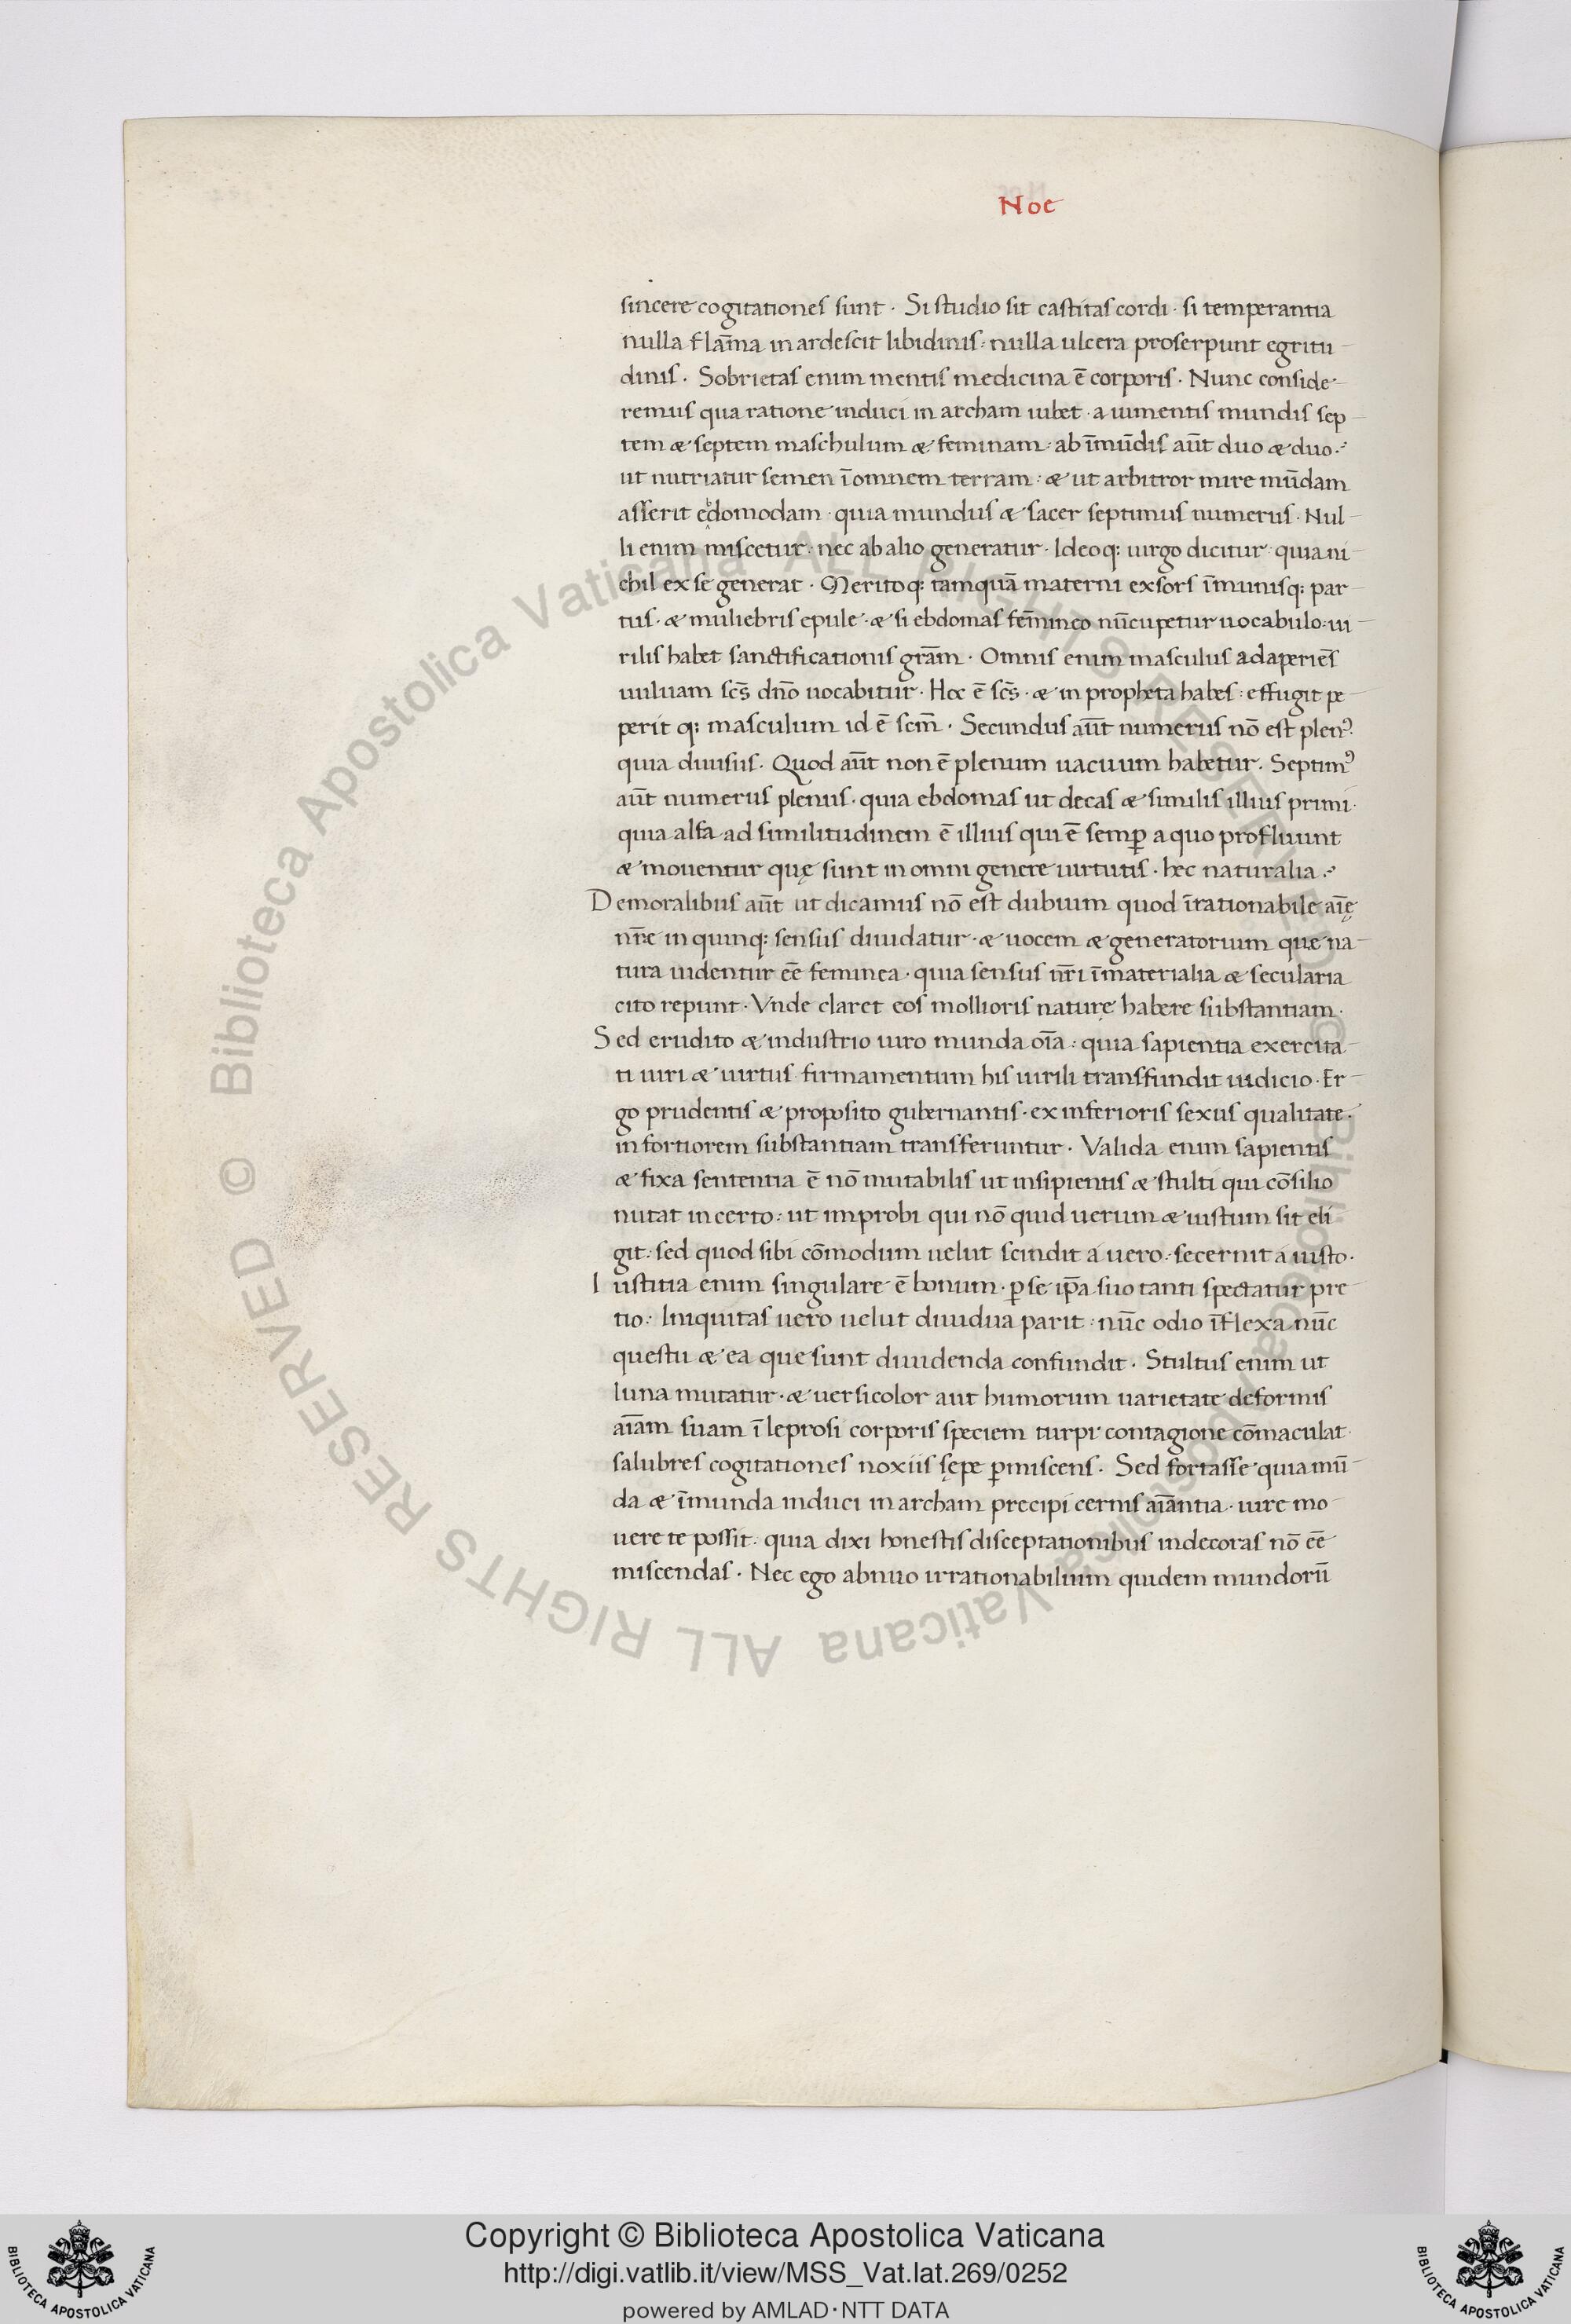 Noe
sincere cogitationes sunt · Si studio sit castitas cordi · si temperantia
nulla flāma inardescit libidinis : nulla ulcera proserpunt egritu
dinis · Sobrietas enim mentis medicina ē corporis · Nunc conside
remus qua ratione induci in archam iubet · a iumentis mundis sep
tem & septem maschulum & feminam · ab īmūdis aūt duo & duo ·
ut nutriatur semen ī omnem terram : & ut arbitror mire mūdam
asserit ebdomodam · quia mundus & sacer septimus numerus · Nul
li enim miscetur · nec ab alio generatur · Ideoq: uirgo dicitur · quia ni
chil ex se generat · Meritoq: tamquā materni exsors īmunisq: par
tus · & muliebris epule · & si ebdomas femineo nūcupetur uocabulo : ui
rilis habet sanctificationis grām · Omnis enim masculus adaperiēs
uuluam scs̄ dn̄o uocabitur · Hoc ē scs̄ · & in propheta habes : effugit pe
perit q: masculum id ē scm̄ · Secundus aūt numerus nō est plenꝰ
quia diuisus · Quod aūt non ē plenum uacuum habetur · Septimꝰ
aūt numerus plenus · quia ebdomas ut decas & similis illius primi ·
quia alfa ad similitudinem ē illius qui ē semꝑ a quo profluunt
& mouentur quę sunt in omni genere uirtutis · hec naturalia ·
Demoralibus aūt ut dicamus nō est dubium quod īrationabile aīę
nr̄e in quinq: sensus diuidatur · & uocem & generatorium que na
tura uidentur eē feminea · quia sensus nr̄i īmaterialia & secularia
cito repunt · Vnde claret eos mollioris naturę habere substantiam ·
Sed erudito & industrio uiro munda oīa : quia sapientia exercita
ti uiri & uirtus firmamentum his uirili transfundit iudicio · Er
go prudentis & proposito gubernantis · ex inferioris sexus qualitate ·
in fortiorem substantiam transferuntur · Valida enim sapientis
& fixa sententia ē nō mutabilis ut insipientis & stulti qui cōsilio
nutat incerto : ut improbi qui nō quid uerum & iustum sit eli
git : sed quod sibi cōmodum uelut scindit a uero : secernit a iusto ·
Iustitia enim singulare ē bonum · ꝑ se ip̄a suo tanti spectatur pre
tio : Iniquitas uero uelut diuidua parit : nūc odio īflexa nūc
questu & ea que sunt diuidenda confundit · Stultus enim ut
luna mutatur · & uersicolor aut humorum uarietate deformis
aīam suam ī leprosi corporis speciem turpi contagione cōmaculat
salubres cogitationes noxiis sępe ꝑmiscens · Sed fortasse quia mū
da & īmunda induci in archam precipi cernis aīantia · iure mo
uere te possit · quia dixi honestis disceptationibus indecoras nō eē
miscendas · Nec ego abnuo irrationabilium quidem mundorū
© Biblioteca Apostolica Vaticana ALL RIGHTS RESERVED © Biblioteca Apostolica Vaticana ALL RIGHTS RESERVED
Copyright © Biblioteca Apostolica Vaticana
http://digi.vatlib.it/view/MSS_Vat.lat.269/0252
powered by AMLAD·NTT DATA
BIBLIOTECA APOSTOLICA VATICANA
BIBLIOTECA APOSTOLICA VATICANA